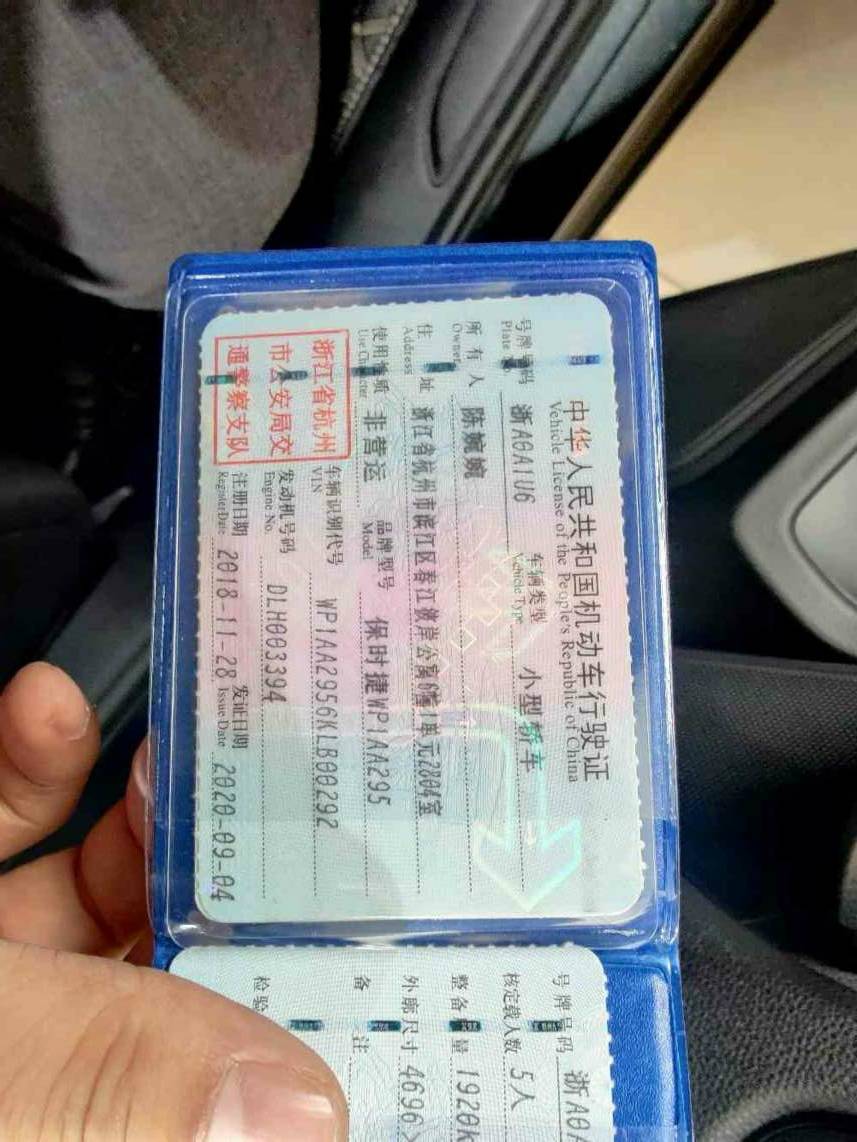 中华人民共和国机动车行驶证
Vehicle License of the People's Republic of China
号牌号码 浙A0A1U6 车辆类型 小型轿车
Plate No. Vehicle Type
所有人 陈婉婉
Owner
住址 浙江省杭州市滨江区春江彼岸公寓6幢1单元2804室
Address
使用性质 非营运 品牌型号 保时捷WP1AA295
Use Character Model
浙江省杭州
市公安局交
通警察支队
车辆识别代号 WP1AA2956KLB00292
VIN
发动机号码 DLH003394
Engine No.
注册日期 2018-11-28 发证日期 2020-09-04
Register Date Issue Date
号牌号码 浙A0A
核定载人数 5人
整备质量 1920k
外廓尺寸 4696
备注
检验